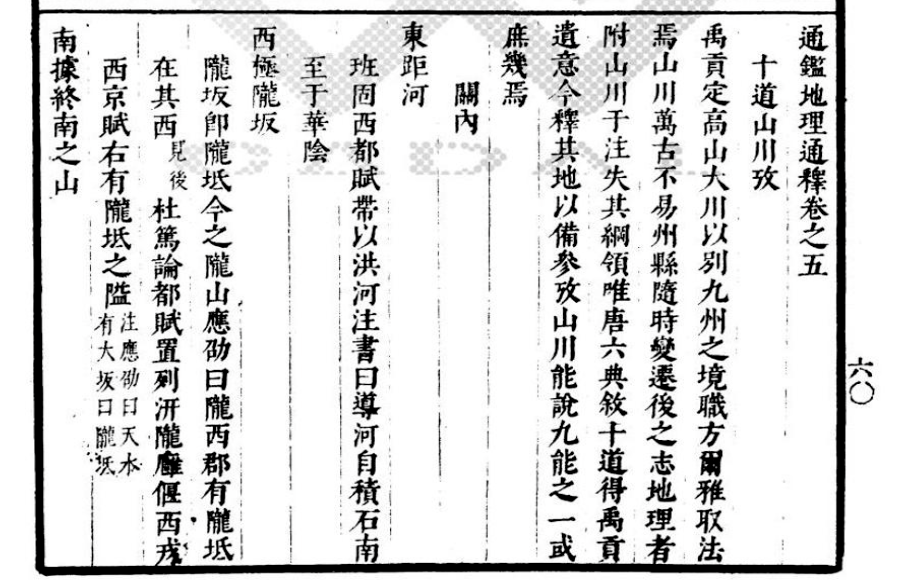 通鑑地理通釋卷之五
十道山川攷
禹貢定高山大川以别九州之境職方爾雅取法
焉山川萬古不易州縣隨時變遷後之志地理者
附山川于注失其綱領唯唐六典敘十道得禹貢
遺意今釋其地以備參攷山川能說九能之一或
庶幾焉
關內
東距河
班固西都賦帶以洪河注書曰導河自積石南
至于華陰
西極隴坂
隴坂卽隴坻今之隴山應劭曰隴西郡有隴坻
在其西見後杜篤論都賦置列汧隴雝偃西戎
西京賦右有隴坻之隘注應劭曰天水有大坂曰隴坻
南據終南之山
六〇